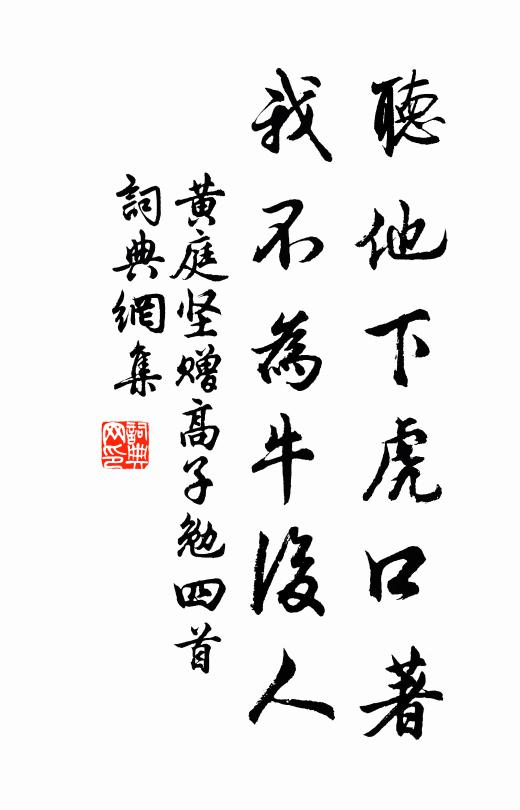 聽他下虎口著
我不為牛後人
黄庭坚赠高子勉四首
詞典網集
詞典网印